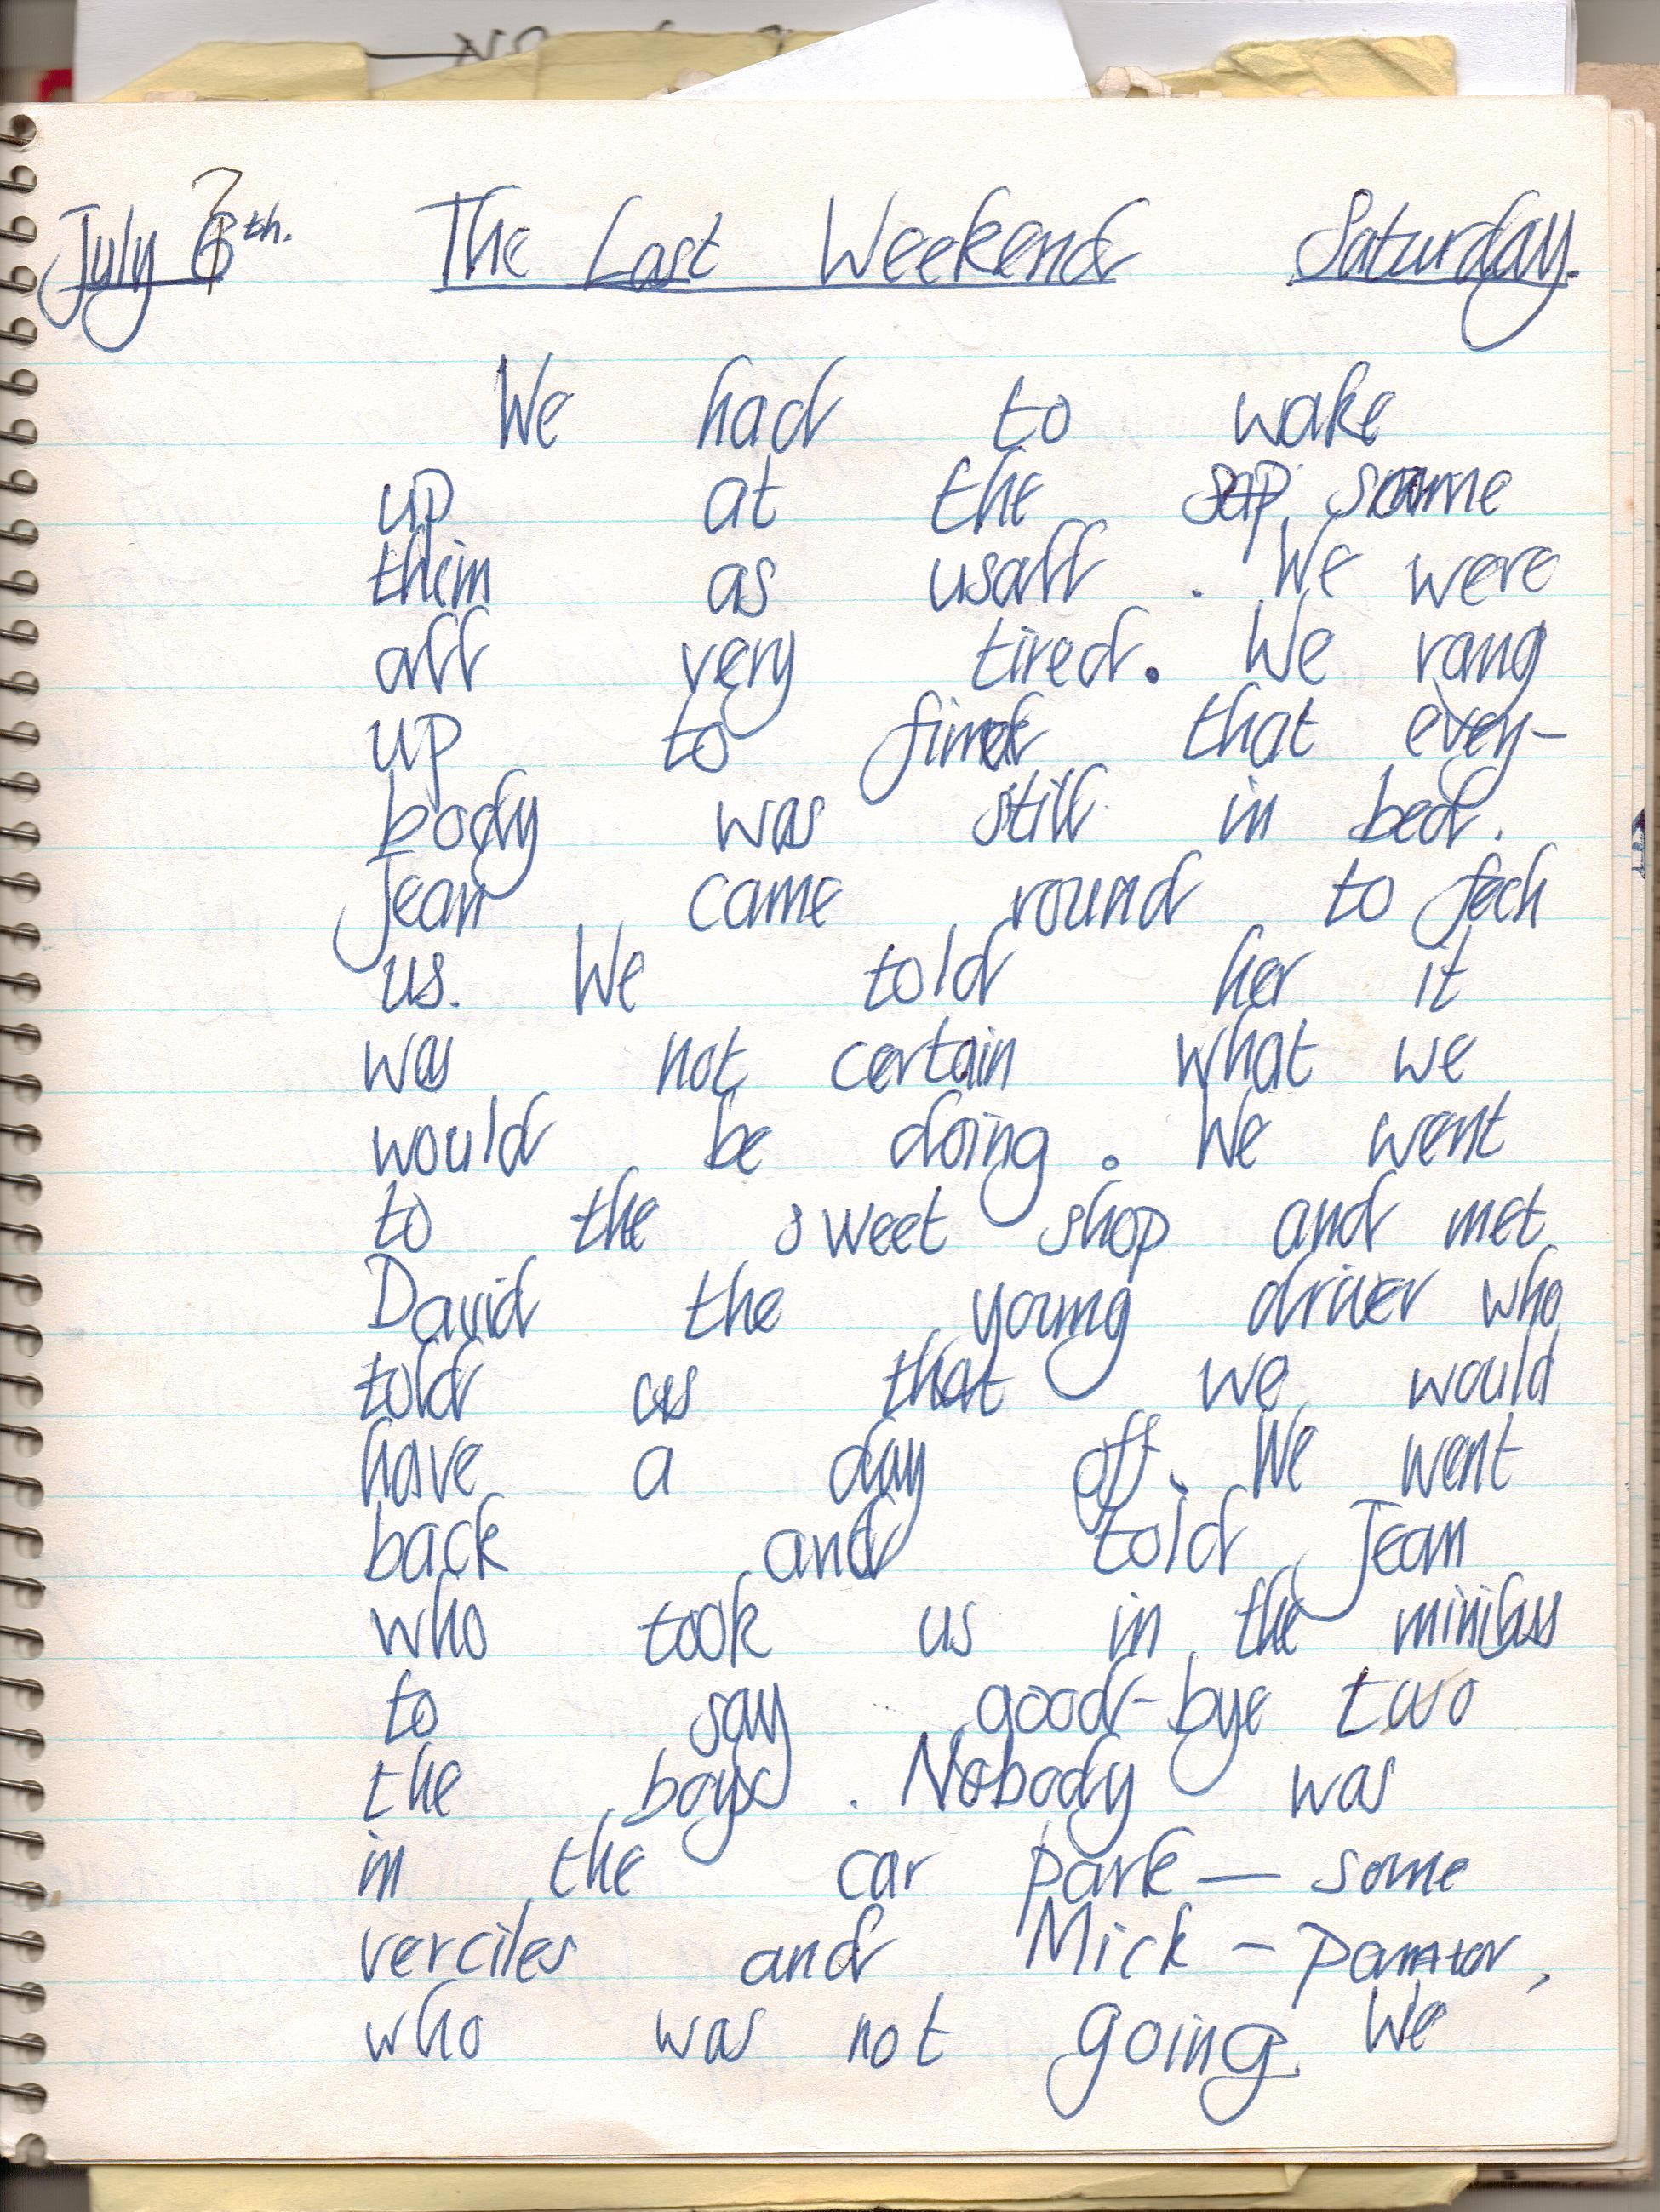 July 7th. The Last Weekend Saturday.
We had to wake
up at the sap same
them as usall. We were
all very tired. We rang
up to find that every-
body was still in bed.
Jean came round to fech
us. We told her it
was not certain what we
would be doing. We went
to the sweet shop and met
David the young driver who
told us that we would
have a day off. We went
back and told Jean
who took us in the minibus
to say good-bye two
the boys. Nobody was
in the car park — some
verciles and Mick -
who was not going. We